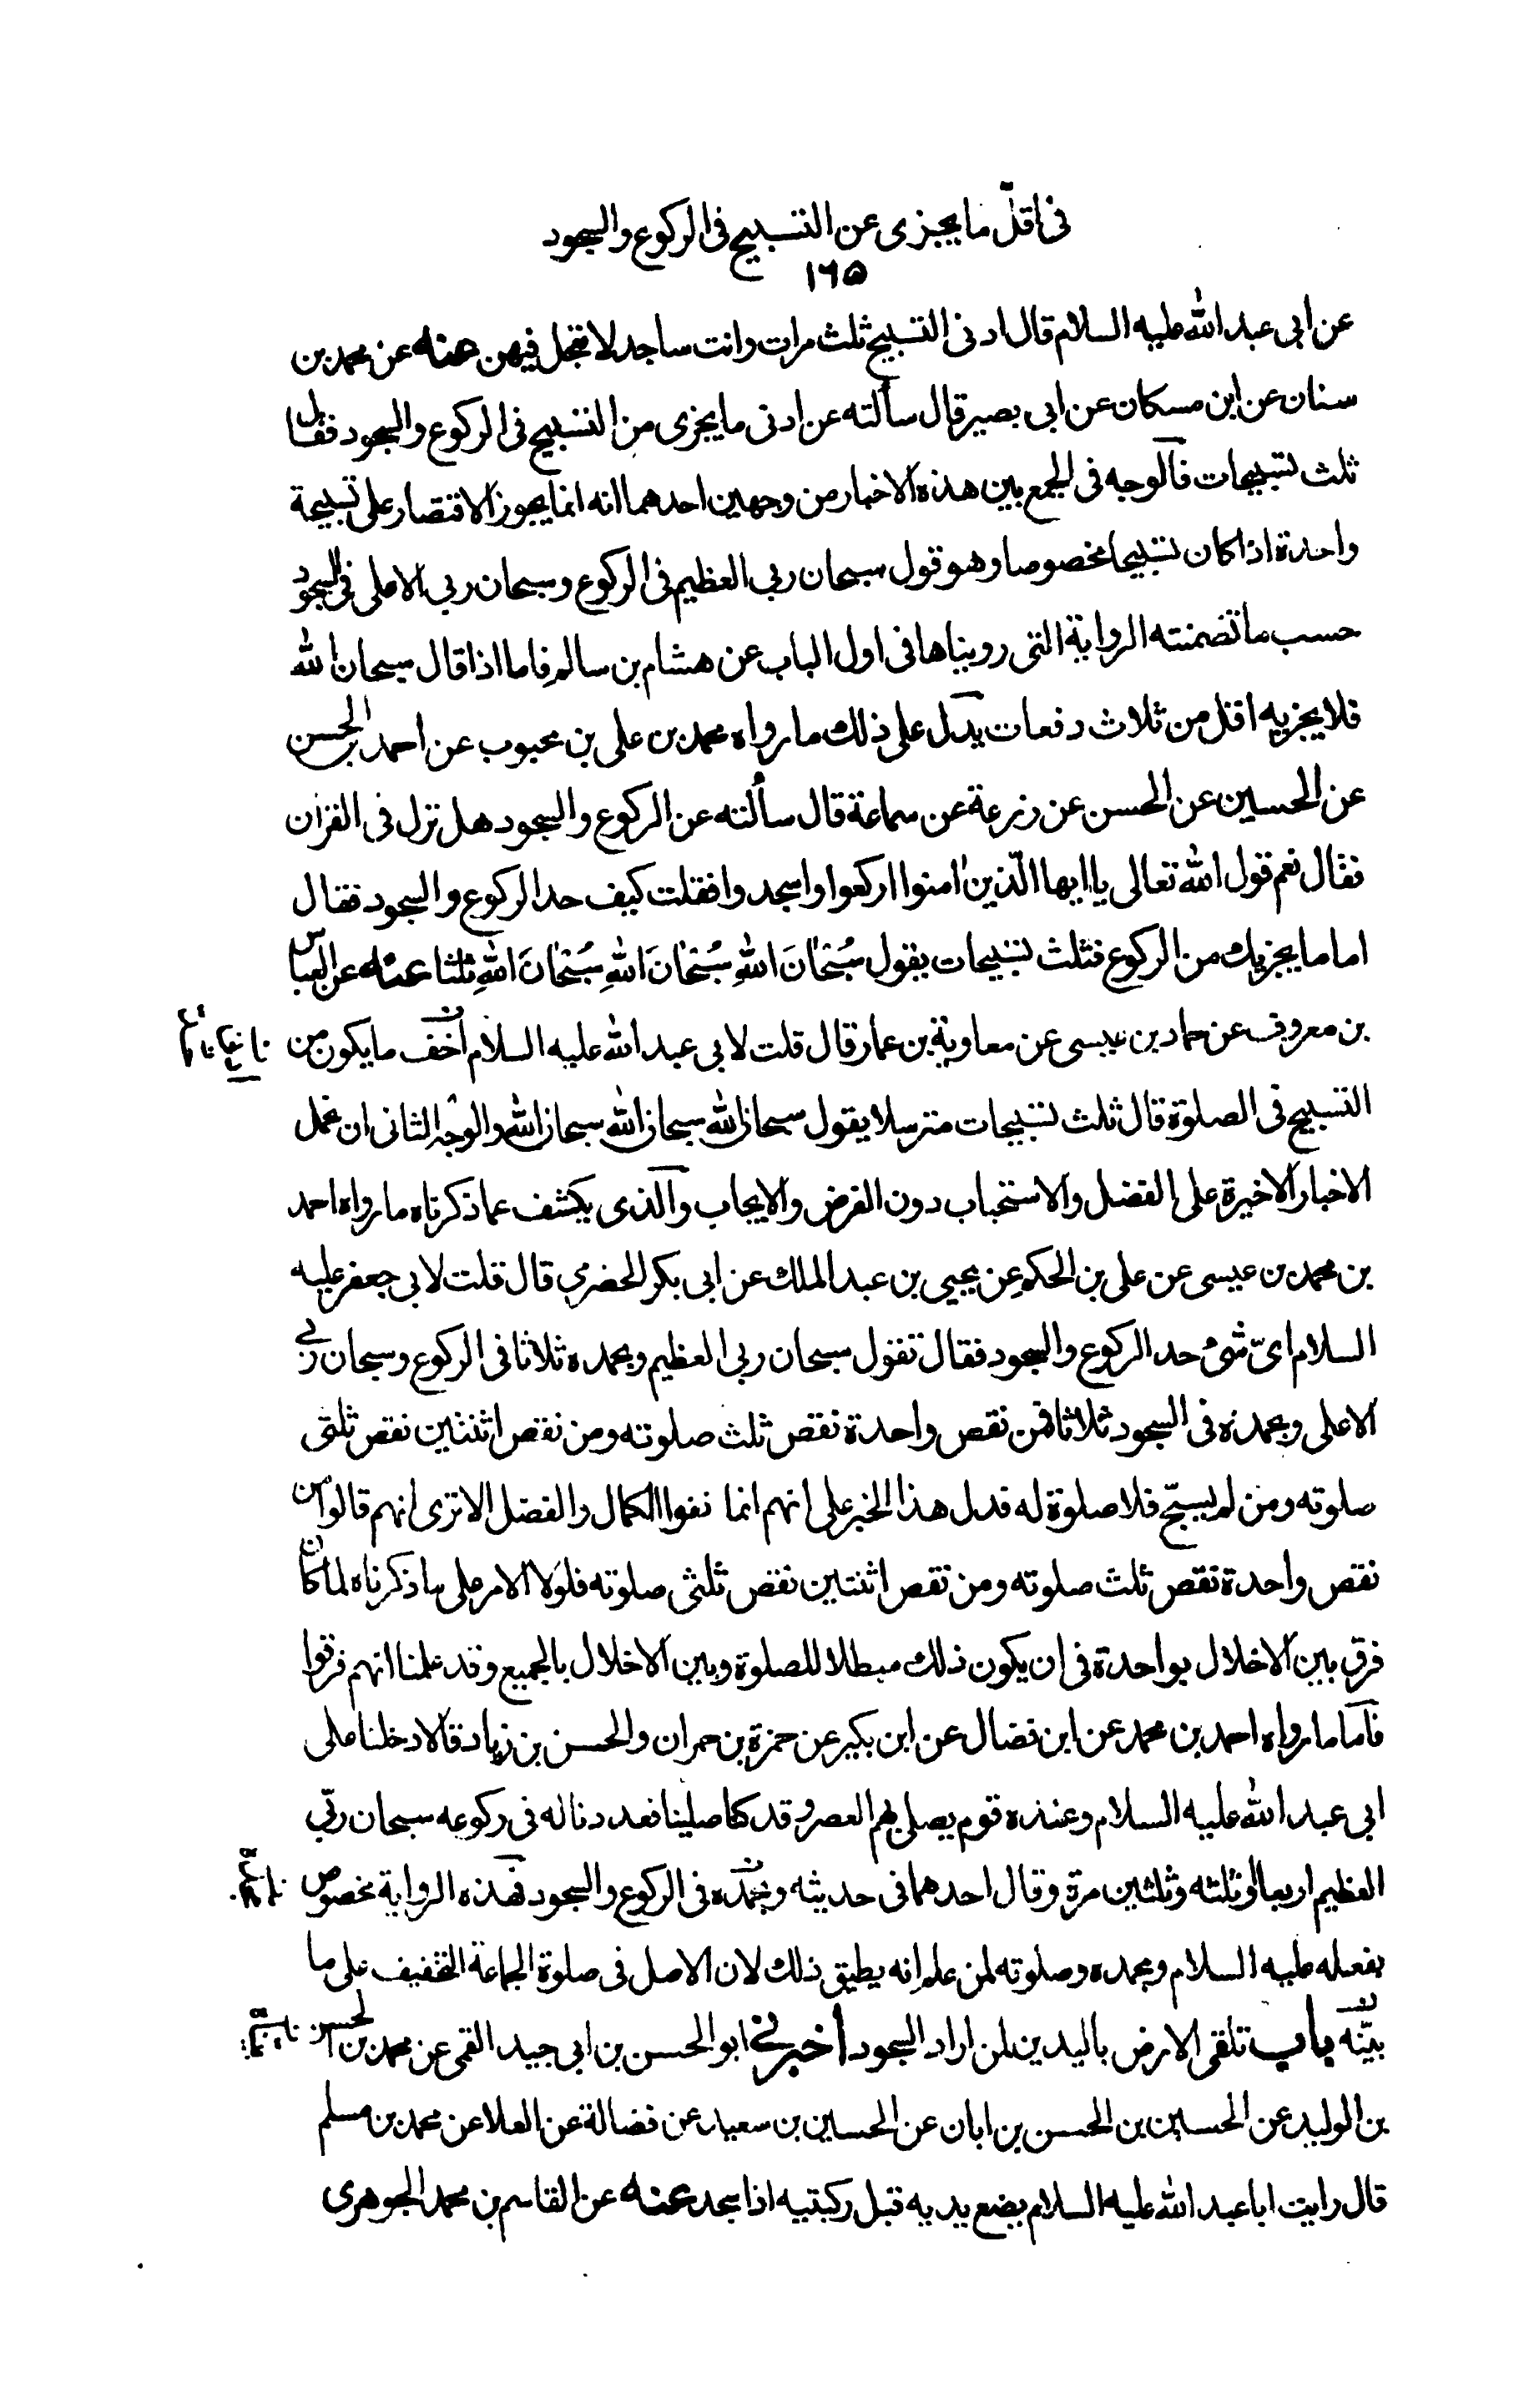 فى اقلّ ما يجزى عن التسبيح فى الركوع والسجود
١٦٥
عن ابى عبد الله عليه السلام قال ادنى التسبيح ثلث مرات وانت ساجد لا تعجل فيهن عنه عن محمد بن
سنان عن ابن مسكان عن ابى بصير قال سألته عن ادنى ما يجزى من التسبيح فى الركوع والسجود فقال
ثلث تسبيحات فالوجه فى الجمع بين هذه الاخبار من وجهين احدهما انه انما يجوز الاقتصار على تسبيحة
واحدة اذا كان تسبيحا مخصوصا وهو قول سبحان ربى العظيم فى الركوع وسبحان ربى الاعلى فى السجود
حسب ما تضمنته الرواية التى رويناها فى اول الباب عن هشام بن سالم فاما اذا قال سبحان الله
فلا يجزيه اقل من ثلاث دفعات يدل على ذلك ما رواه محمد بن على بن محبوب عن احمد بن الحسن
عن الحسين عن الحسن عن زرعة عن سماعة قال سألته عن الركوع والسجود هل نزل فى القرآن
فقال نعم قول الله تعالى يا ايها الّذين امنوا اركعوا واسجدوا فقلت كيف حد الركوع والسجود فقال
اما ما يجزيك من الركوع فثلث تسبيحات يقول سُبْحانَ اللهِ سُبْحانَ اللهِ سُبْحانَ اللهِ ثلثا عنه عن العباس
بن معروف عن حماد بن عيسى عن معاوية بن عمار قال قلت لابى عبد الله عليه السلام اخف ما يكون من
التسبيح فى الصلوة قال ثلث تسبيحات مترسلا يقول سبحان الله سبحان الله سبحان الله والوجه الثانى ان نحمل
الاخبار الاخيرة على الفضل والاستحباب دون الفرض والايجاب والذى يكشف عما ذكرناه ما رواه احمد
بن محمد بن عيسى عن على بن الحكم عن يحيى بن عبد الملك عن ابى بكر الحضرمى قال قلت لابى جعفر عليه
السلام اىّ شئ حد الركوع والسجود فقال تقول سبحان ربى العظيم وبحمده ثلاثا فى الركوع وسبحان ربى
الاعلى وبحمده فى السجود ثلاثا فمن نقص واحدة نقص ثلث صلوته ومن نقص اثنتين نقص ثلثى
صلوته ومن لم يسبّح فلا صلوة له فدل هذا الخبر على انهم انما نفوا الكمال والفضل الا ترى انهم قالوا من
نقص واحدة نقص ثلث صلوته ومن نقص اثنتين نقص ثلثى صلوته فلولا الامر على ما ذكرناه لما كان
فرق بين الاخلال بواحدة فى ان يكون ذلك مبطلا للصلوة وبين الاخلال بالجميع وقد علمنا انهم فرقوا
فاما ما رواه احمد بن محمد عن ابن فضال عن ابن بكير عن حمزة بن حمران والحسن بن زياد قالا دخلنا على
ابى عبد الله عليه السلام وعنده قوم يصلى بهم العصر وقد كنا صلينا فعددنا له فى ركوعه سبحان ربّى
العظيم اربعا او ثلثه وثلثين مرة وقال احدهما فى حديثه وبحمده فى الركوع والسجود فهذه الرواية مخصوص
بفعله عليه السلام وبحمده وصلوته لمن علم انه يطيق ذلك لان الاصل فى صلوة الجماعة التخفيف على ما
بيّنه باب تلقى الارض باليدين لمن اراد السجود اخبرنى ابو الحسن بن ابى جيد القمى عن محمد بن الحسن
بن الوليد عن الحسين بن الحسن بن ابان عن الحسين بن سعيد عن فضالة عن العلا عن محمد بن مسلم
قال رايت ابا عبد الله عليه السلام يضع يديه قبل ركبتيه اذا سجد عنه عن القاسم بن محمد الجوهرى